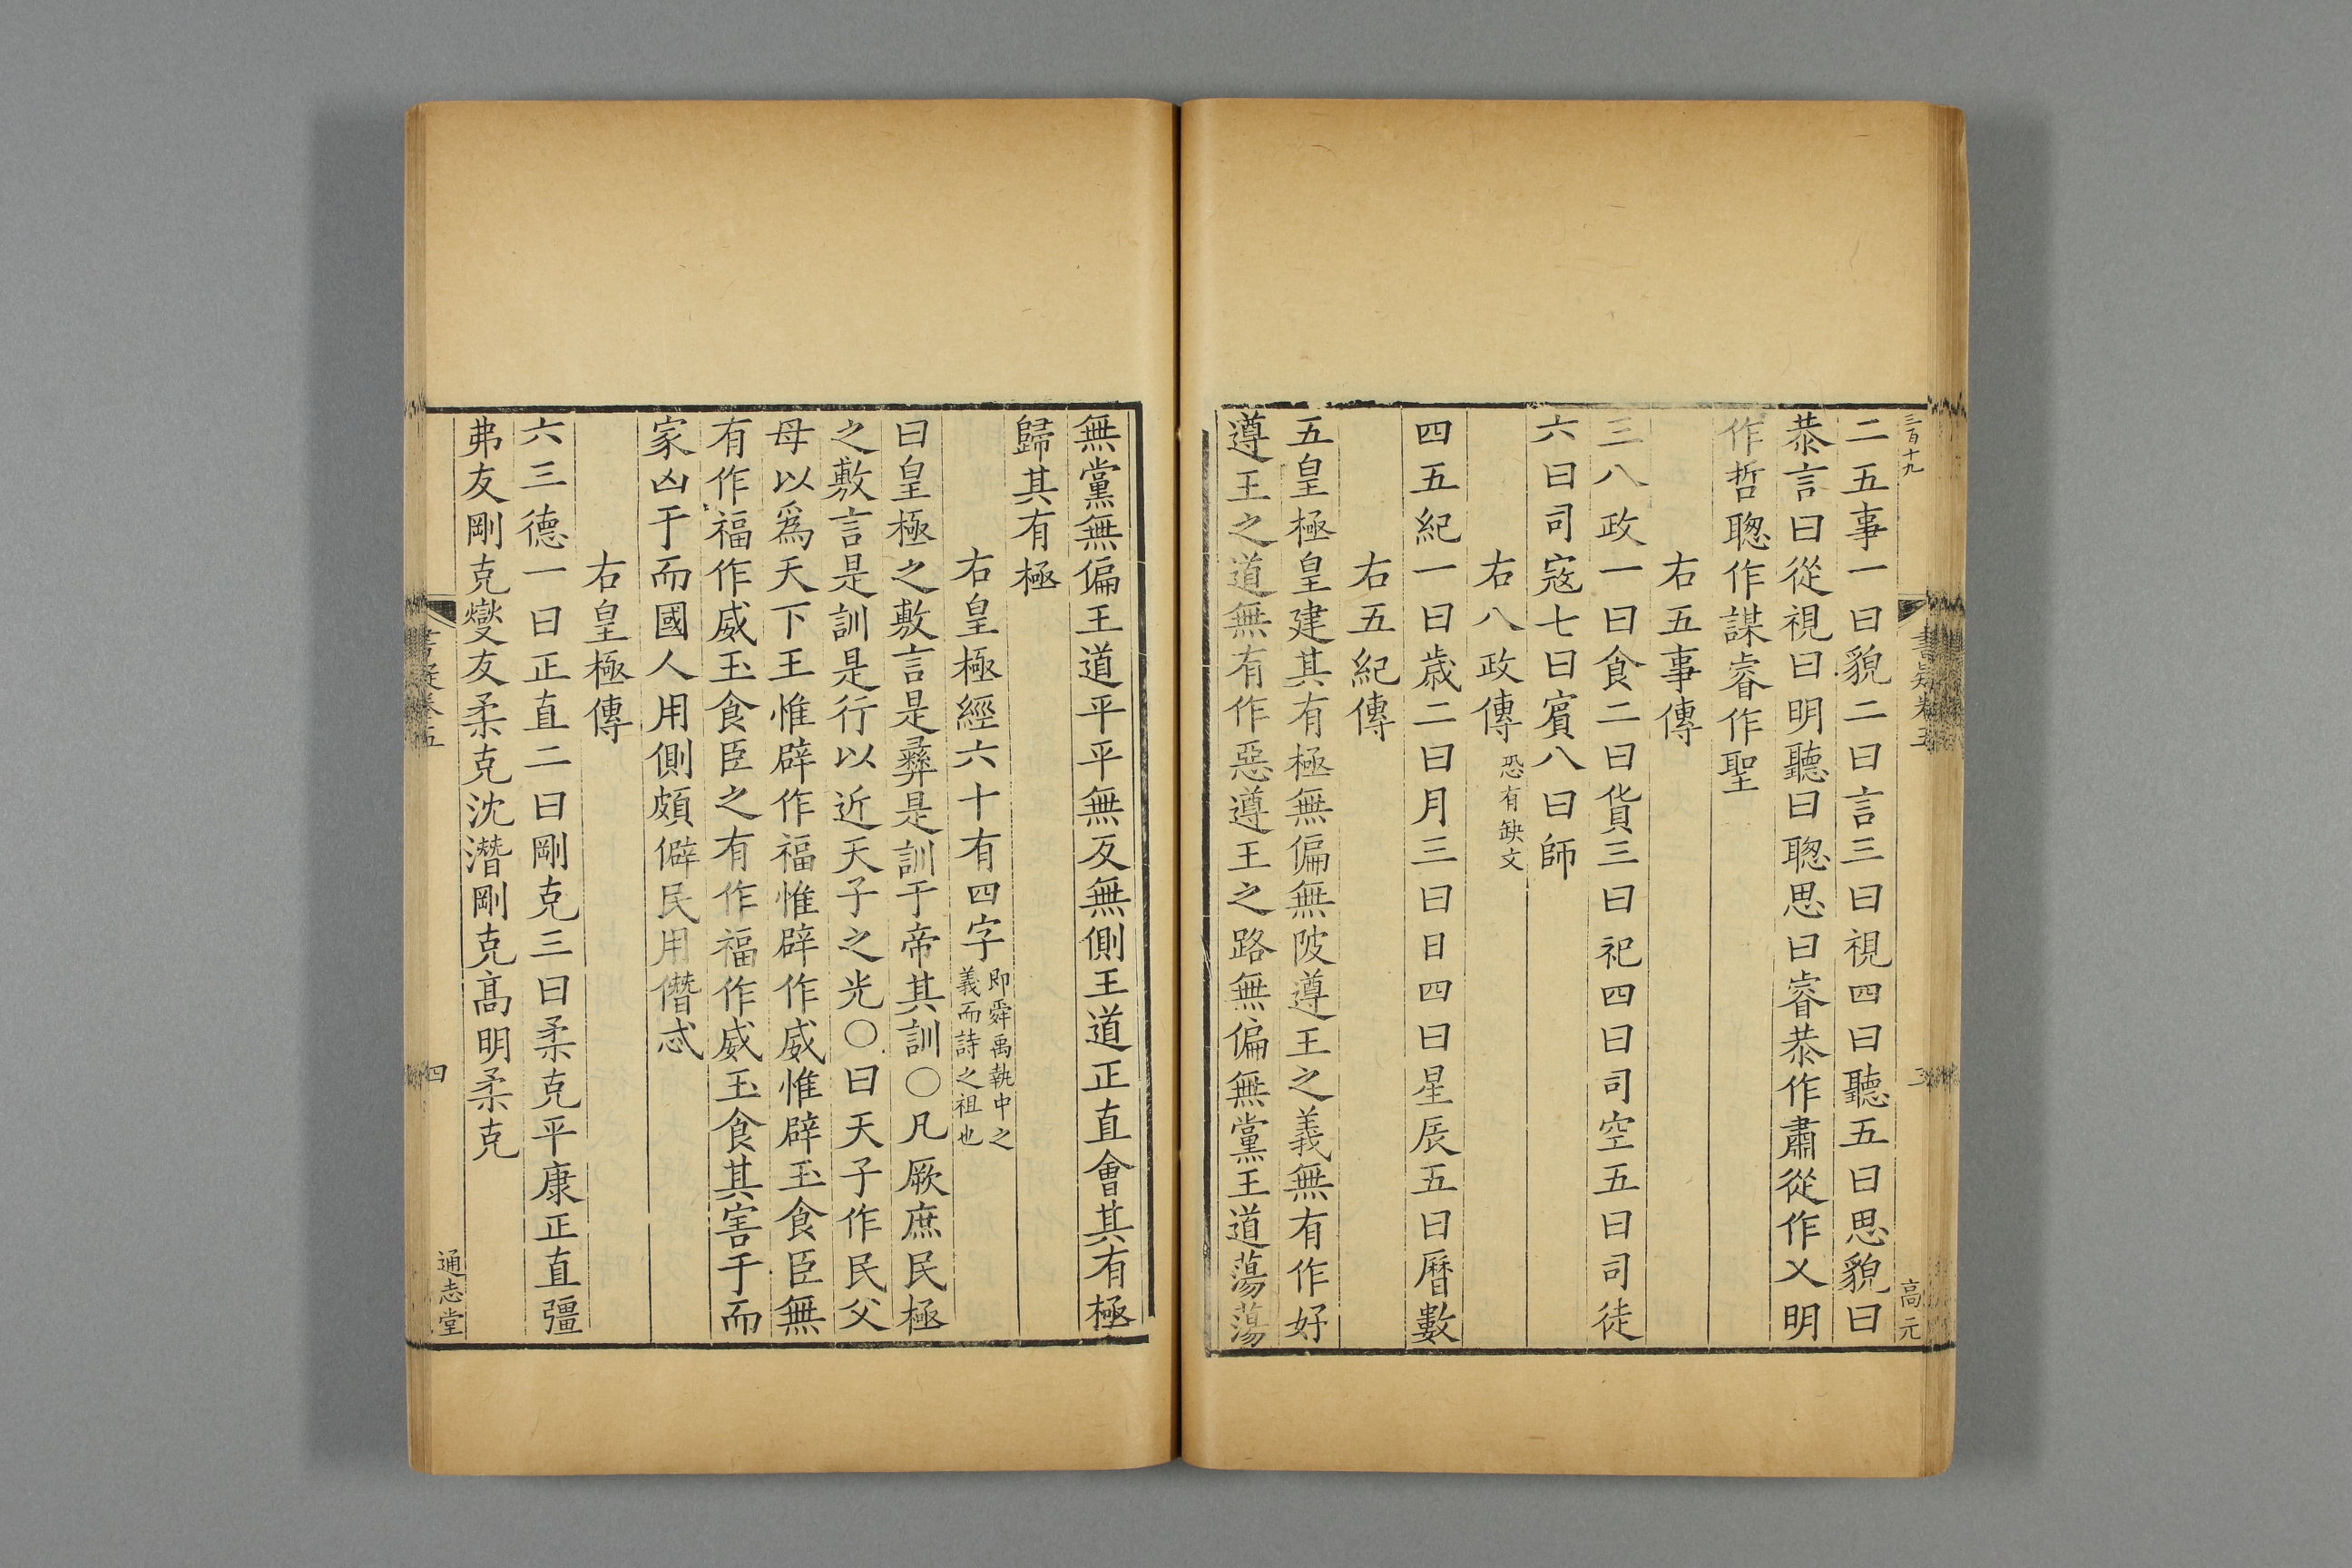 三百十九
書疑卷五
三
高元
二五事一曰貌二曰言三曰視四曰聽五曰思貌曰
恭言曰從視曰明聽曰聦思曰睿恭作肅從作乂明
作哲聦作謀睿作聖
右五事傳
三八政一曰食二曰貨三曰祀四曰司空五曰司徒
六曰司寇七曰賔八曰師
右八政傳恐有缺文
四五紀一曰歲二曰月三曰日四曰星辰五曰曆數
右五紀傳
五皇極皇建其有極無偏無陂遵王之義無有作好
遵王之道無有作惡遵王之路無偏無黨王道蕩蕩
無黨無偏王道平平無反無側王道正直會其有極
歸其有極
右皇極經六十有四字即舜禹執中之
義而詩之祖也
曰皇極之敷言是彞是訓于帝其訓○凡厥庶民極
之敷言是訓是行以近天子之光○曰天子作民父
母以爲天下王惟辟作福惟辟作威惟辟玉食臣無
有作福作威玉食臣之有作福作威玉食其害于而
家凶于而國人用側頗僻民用僭忒
右皇極傳
六三德一曰正直二曰剛克三曰柔克平康正直彊
弗友剛克燮友柔克沈潛剛克髙明柔克
書疑卷五
四
通志堂